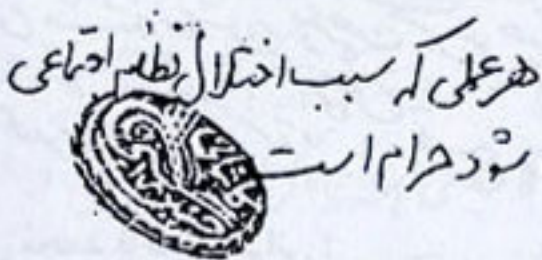 هر عملی که سبب اختلال نظام اجتماعی
شود حرام است